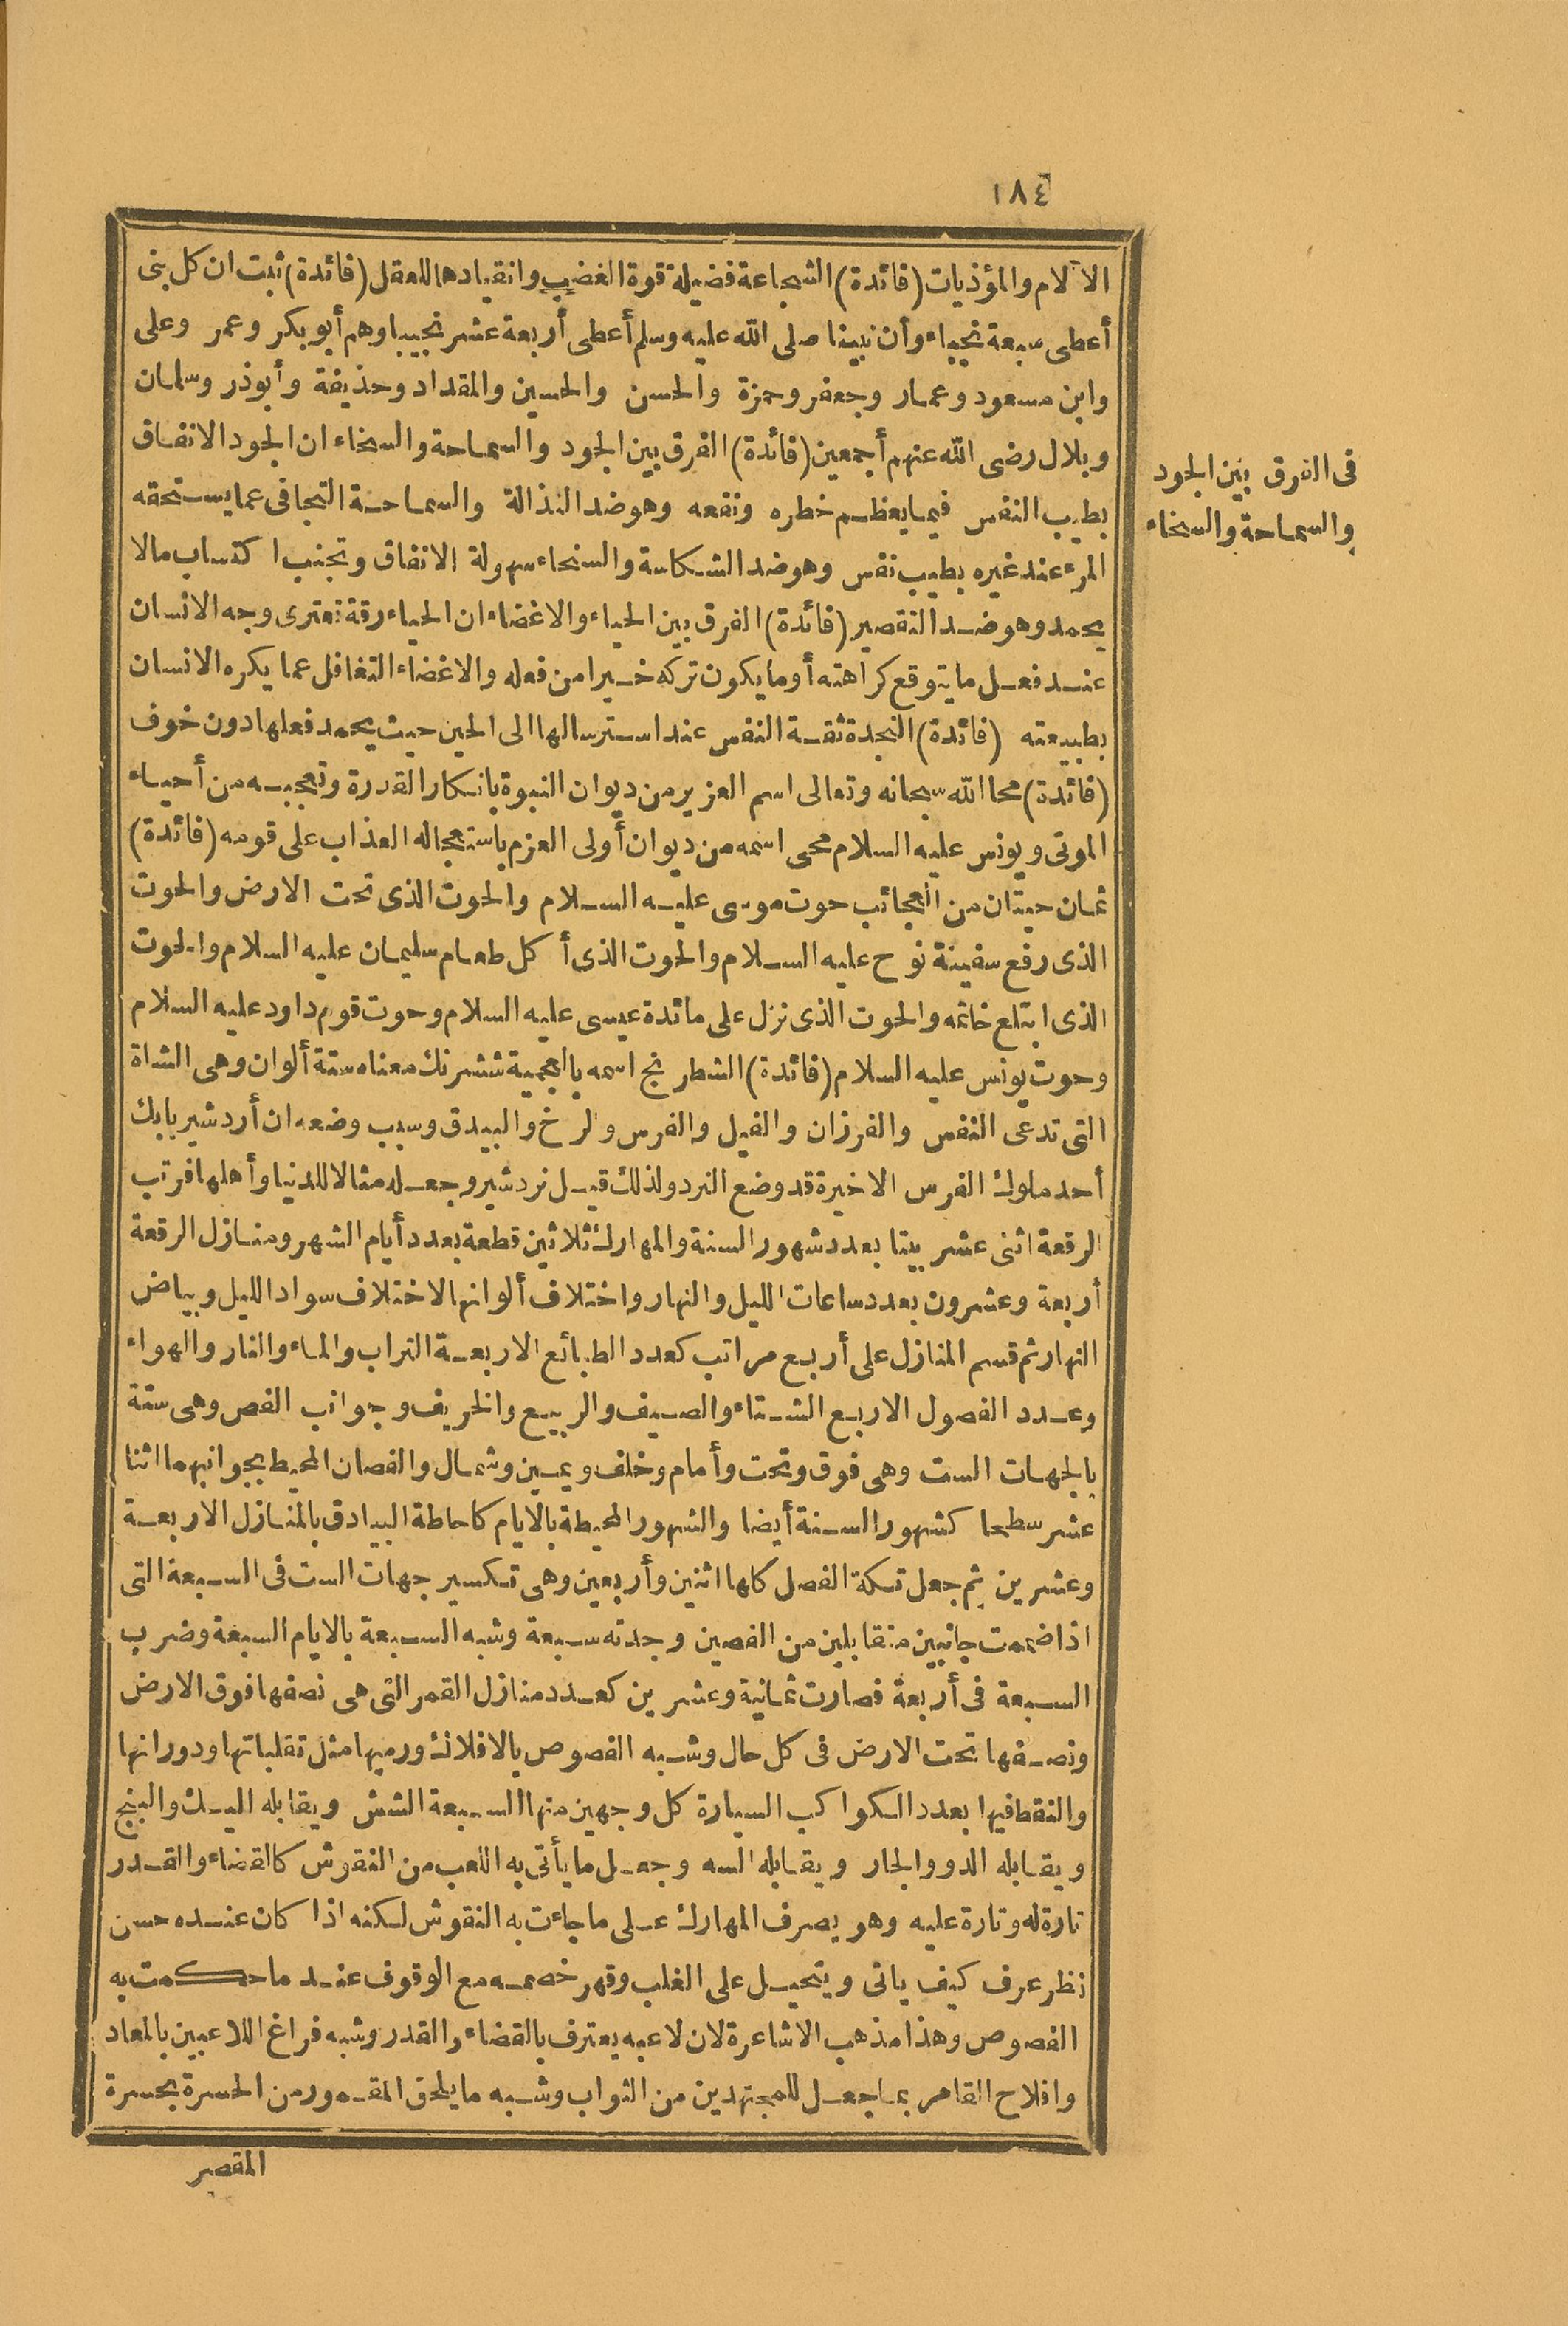 ١٨٤
الآلام والمؤذيات (فائدة) الشجاعة فضيلة قوة الغضب وانقيادها للعقل (فائدة) ثبت ان كل نبى
أعطى سبعة نجباء وأن نبينا صلى الله عليه وسلم أعطى أربعة عشر نجيبا وهم أبو بكر وعمر وعلى
وابن مسعود وعمار وجعفر وحمزة والحسن والحسين والمقداد وحذيفة وأبوذر وسلمان
وبلال رضى الله عنهم أجمعين (فائدة) الفرق بين الجود والسماحة والسخاء ان الجود الانفاق
فى الفرق بين الجود
والسماحة والسخاء
بطيب النفس فيما يعظم خطره ونفعه وهو ضد النذالة والسماحة التجافى عما يستحقه
المرء عند غيره بطيب نفس وهو ضد الشكاسة والسخاء سهولة الانفاق وتجنب اكتساب مالا
يحمد وهو ضد التقصير (فائدة) الفرق بين الحياء والاغضاء ان الحياء رقة تعترى وجه الانسان
عند فعل ما يتوقع كراهته أوما يكون تركه خيرا من فعله والاغضاء التغافل عما يكره الانسان
بطبيعته (فائدة) النجدة ثقة النفس عند استرسالها الى الحين حيث يحمد فعلها دون خوف
(فائدة) محا الله سبحانه وتعالى اسم العزير من ديوان النبوة بانكار القدرة وتعجبه من أحياء
الموتى ويونس عليه السلام محى اسمه من ديوان أولى العزم باستعجاله العذاب على قومه (فائدة)
ثمان حيتان من العجائب حوت موسى عليه السلام والحوت الذى تحت الارض والحوت
الذى رفع سفينة نوح عليه السلام والحوت الذى أكل طعام سليمان عليه السلام والحوت
الذى ابتلع خاتمه والحوت الذى نزل على مائدة عيسى عليه السلام وحوت قوم داود عليه السلام
وحوت يونس عليه السلام (فائدة) الشطرنج اسمه بالعجمية ششرنك معناه ستة ألوان وهى الشاة
التى تدعى النفس والفرزان والفيل والفرس والرخ والبيدق وسبب وضعه ان أردشير بابك
أحد ملوك الفرس الاخيرة قد وضع النرد ولذلك قيل نردشير وجعله مثالا للدنيا وأهلها فرتب
الرقعة اثنى عشر بيتا بعدد شهور السنة والمهارك ثلاثين قطعة بعدد أيام الشهر ومنازل الرقعة
أربعة وعشرون بعدد ساعات الليل والنهار واختلاف ألوانها لاختلاف سواد الليل وبياض
النهار ثم قسم المنازل على أربع مراتب كعدد الطبائع الاربعة التراب والماء والنار والهواء
وعدد الفصول الاربع الشتاء والصيف والربيع والخريف وجوانب الفص وهى ستة
بالجهات الست وهى فوق وتحت وأمام وخلف ويمين وشمال والفصان المحيط بجوانبهما اثنا
عشر سطحا كشهور السنة أيضا والشهور المحيطة بالايام كاحاطة البيادق بالمنازل الاربعة
وعشرين ثم جعل تسكة الفصل كلها اثنين وأربعين وهى تكسير جهات الست فى السبعة التى
اذا ضممت جانبين متقابلين من الفصين وجدته سبعة وشبه السبعة بالايام السبعة وضرب
السبعة فى أربعة فصارت ثمانية وعشرين كعدد منازل القمر التى هى نصفها فوق الارض
ونصفها تحت الارض فى كل حال وشبه الفصوص بالافلاك ورميها مثل تقلباتها ودورانها
والنقط فيها بعدد الكواكب السيارة كل وجهين منها السبعة الشش ويقابله اليك والبنج
ويقابله الدو والجار ويقابله السه وجعل ما يأتى به اللعب من النقوش كالقضاء والقدر
تارة له وتارة عليه وهو يصرف المهارك على ما جاءت به النقوش لكنه اذا كان عنده حسن
نظر عرف كيف ياتى ويتحيل على الغلب وقهر خصمه مع الوقوف عند ما حكمت به
الفصوص وهذا مذهب الاشاعرة لان لاعبه يعترف بالقضاء والقدر وشبه فراغ اللاعبين بالمعاد
وافلاح القامر بما جعل للمجتهدين من الثواب وشبه ما يلحق المقمور من الحسرة بحسرة
المقصر